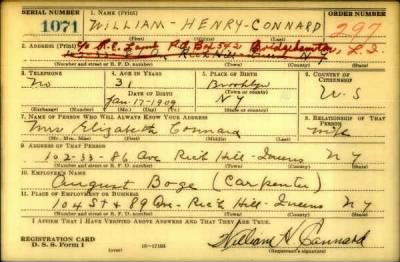 SERIAL NUMBER
1. NAME (Print)
ORDER NUMBER
1071
WILLIAM - HENRY - CONNARD
297
2. ADDRESS (Print)
P.O. Box 342 Bridgehampton, L.I.
Rich Hill - Queens N Y
(Number and street or R. F. D. number) (Town) (County) (State)
3. TELEPHONE
4. AGE IN YEARS
5. PLACE OF BIRTH
6. COUNTRY OF CITIZENSHIP
No
31
Brooklyn
DATE OF BIRTH
(Town or county)
U-S
Jan-17-1909
NY
(Exchange) (Number) (Mo.) (Day) (Yr.) (State or country)
7. NAME OF PERSON WHO WILL ALWAYS KNOW YOUR ADDRESS
8. RELATIONSHIP OF THAT PERSON
Mrs Elizabeth Connard
Wife
(Mr., Mrs., Miss) (First) (Middle) (Last)
9. ADDRESS OF THAT PERSON
102-33-86 Ave Rich Hill-Queens N Y
(Number and street or R. F. D. number) (Town) (County) (State)
10. EMPLOYER'S NAME
August Boge (Carpenter)
11. PLACE OF EMPLOYMENT OR BUSINESS
104 St & 89 Ave - Rich Hill-Queens N Y
(Number and street or R. F. D. number) (Town) (County) (State)
I AFFIRM THAT I HAVE VERIFIED ABOVE ANSWERS AND THAT THEY ARE TRUE.
REGISTRATION CARD
D. S. S. Form 1
(over) 16-17105
William H Connard
(Registrant's signature)